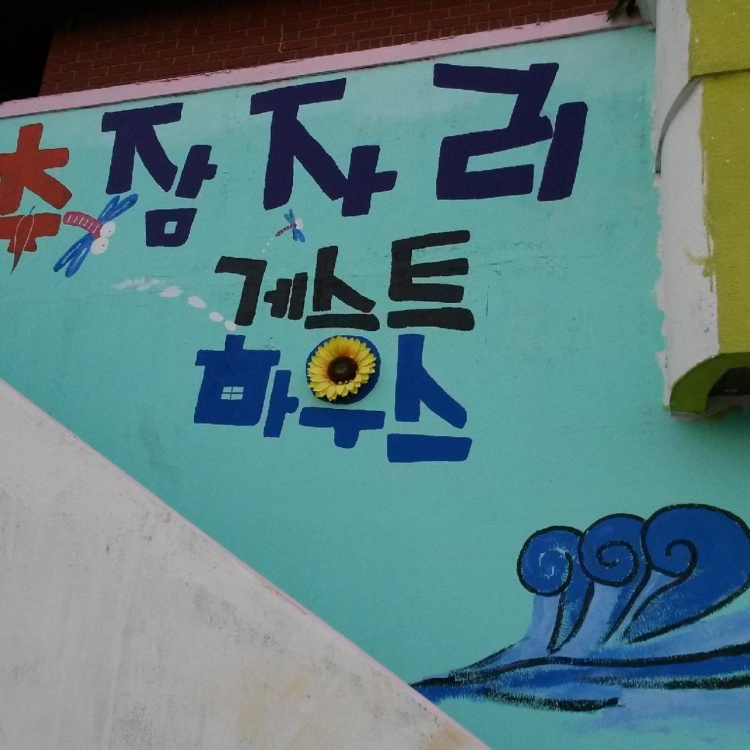 추잠자리
게스트
하우스